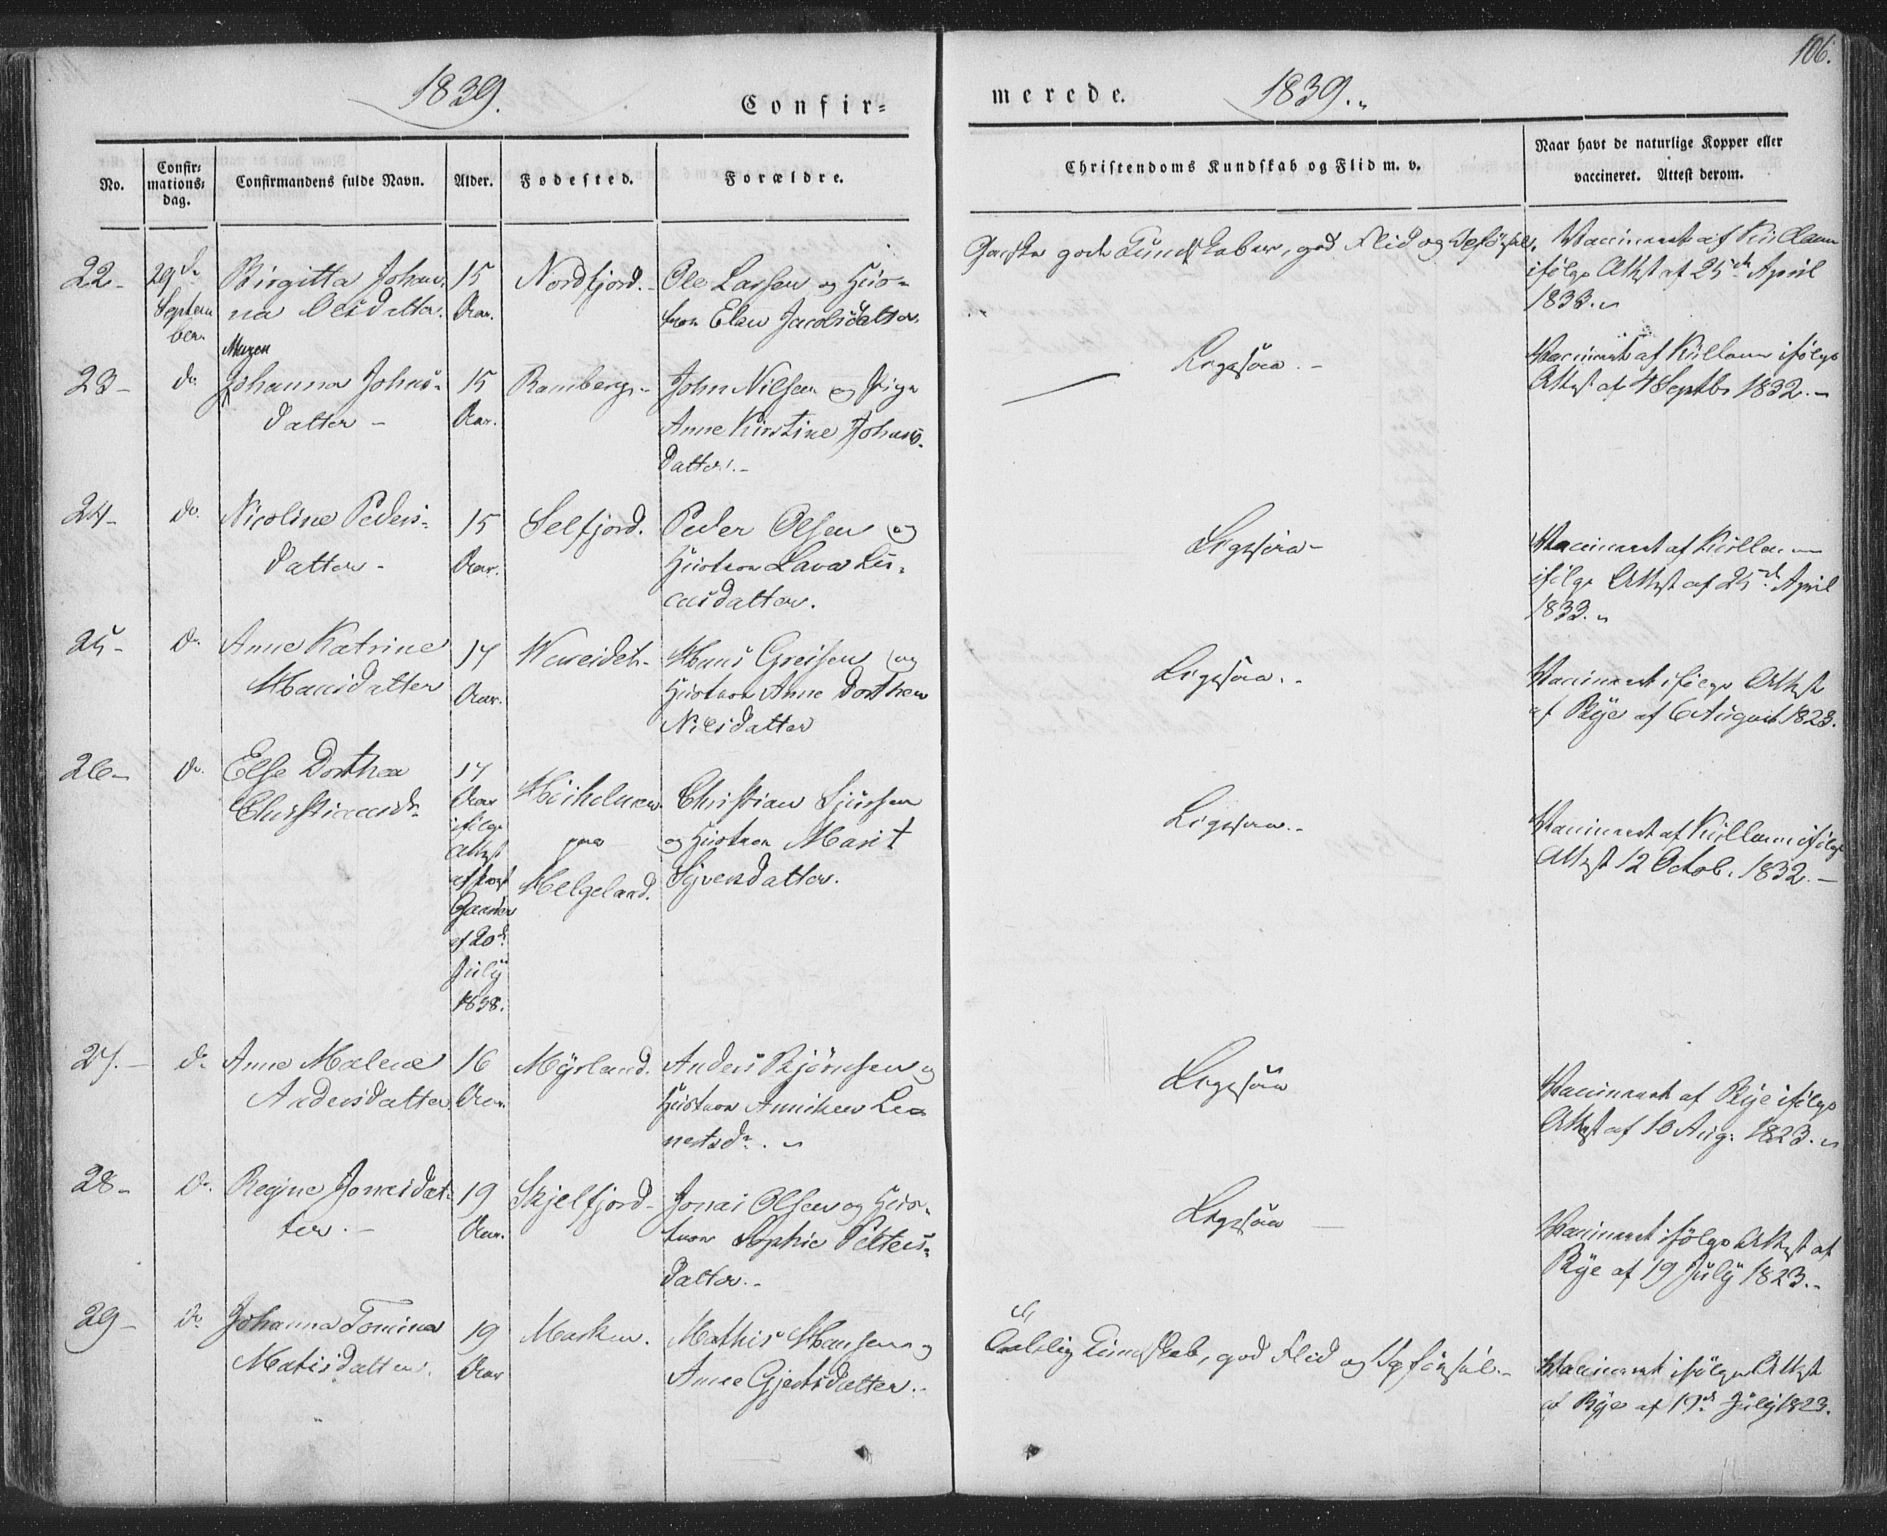 106.
1839. Confir=
merede. 1839.
No.
Confir=
mations=
dag.
Confirmandens fulde Navn.
Alder.
Fødested.
Forældre.
Christendoms Kundskab og Flid m. v.
Naar havt de naturlige Kopper eller
vaccineret. Attest derom.
22-
29de
Septem
ber.
Birgitta Johan
na Olesdatter.
15
Aar.
Nordfjord.
Ole Larsen og Hus-
truen Elen Jacobsdatter.
Ganske gode Kundskaber, god Flid og Opførsel.
Vaccineret af Küllam
ifølge Attest af 25de April
1833.
23-
do
Maren
Johanna Johns-
datter -
15
Aar.
Ramberg-
John Nilsen og Pige
Anne Kirstine Johans-
datter.-
Ligesaa.-
Vaccineret af Küllam ifølge
Attest af 4 Septbr 1832.-
24-
do
Nicoline Peders-
datter -
15
Aar.
Selfjord.
Peder Olsen og
Hustrue Lava Lu-
casdatter.
Ligesaa-
Vaccineret af Küllam
ifølge Attest af 25de April
1833.
25-
do
Anne Katrine
Hansdatter
17
Aar.
Hans Greisen og
Hustrue Anne Dorthea
Nilsdatter
Ligesaa.-
Vaccineret ifølge Attest
af Rye af 6 August 1823.
26-
do
Else Dorthea
Christiansdr
17
Aar
ifølge
Attest
af
af 20de
July
1838.
Høiholmen
paa
Helgeland.
Christian Sjursen
og Hustrue Marit
Syversdatter.
Ligesaa.-
Vaccineret af Küllam ifølge
Attest 12 Octob. 1832.-
27.-
do
Anne Malene
Andersdatter
16
Aar.
Myrland.
Anders Bjørnsen og
Hustrue Anniken Lea
nertsdr.
Ligesaa
Vaccineret af Rye ifølge
Attest af 10 Aug: 1823.
28-
do
Regine Jonasdat-
ter.-
19
Aar.
Skjelfjord-
Jonas Olsen og Hus-
truen Sophie Petters-
datter.-
Ligesaa -
Vaccineret ifølge Attest af
Rye af 19 July 1823.-
29-
do
Johanna Tomina
Matisdatter.
19
Aar
Mathis Hansen og
Anne Gjertsdatter.-
Kundskab, god Flid og Opførsel.-
Vaccineret ifølge Attest
af Rye af 19de July 1823.